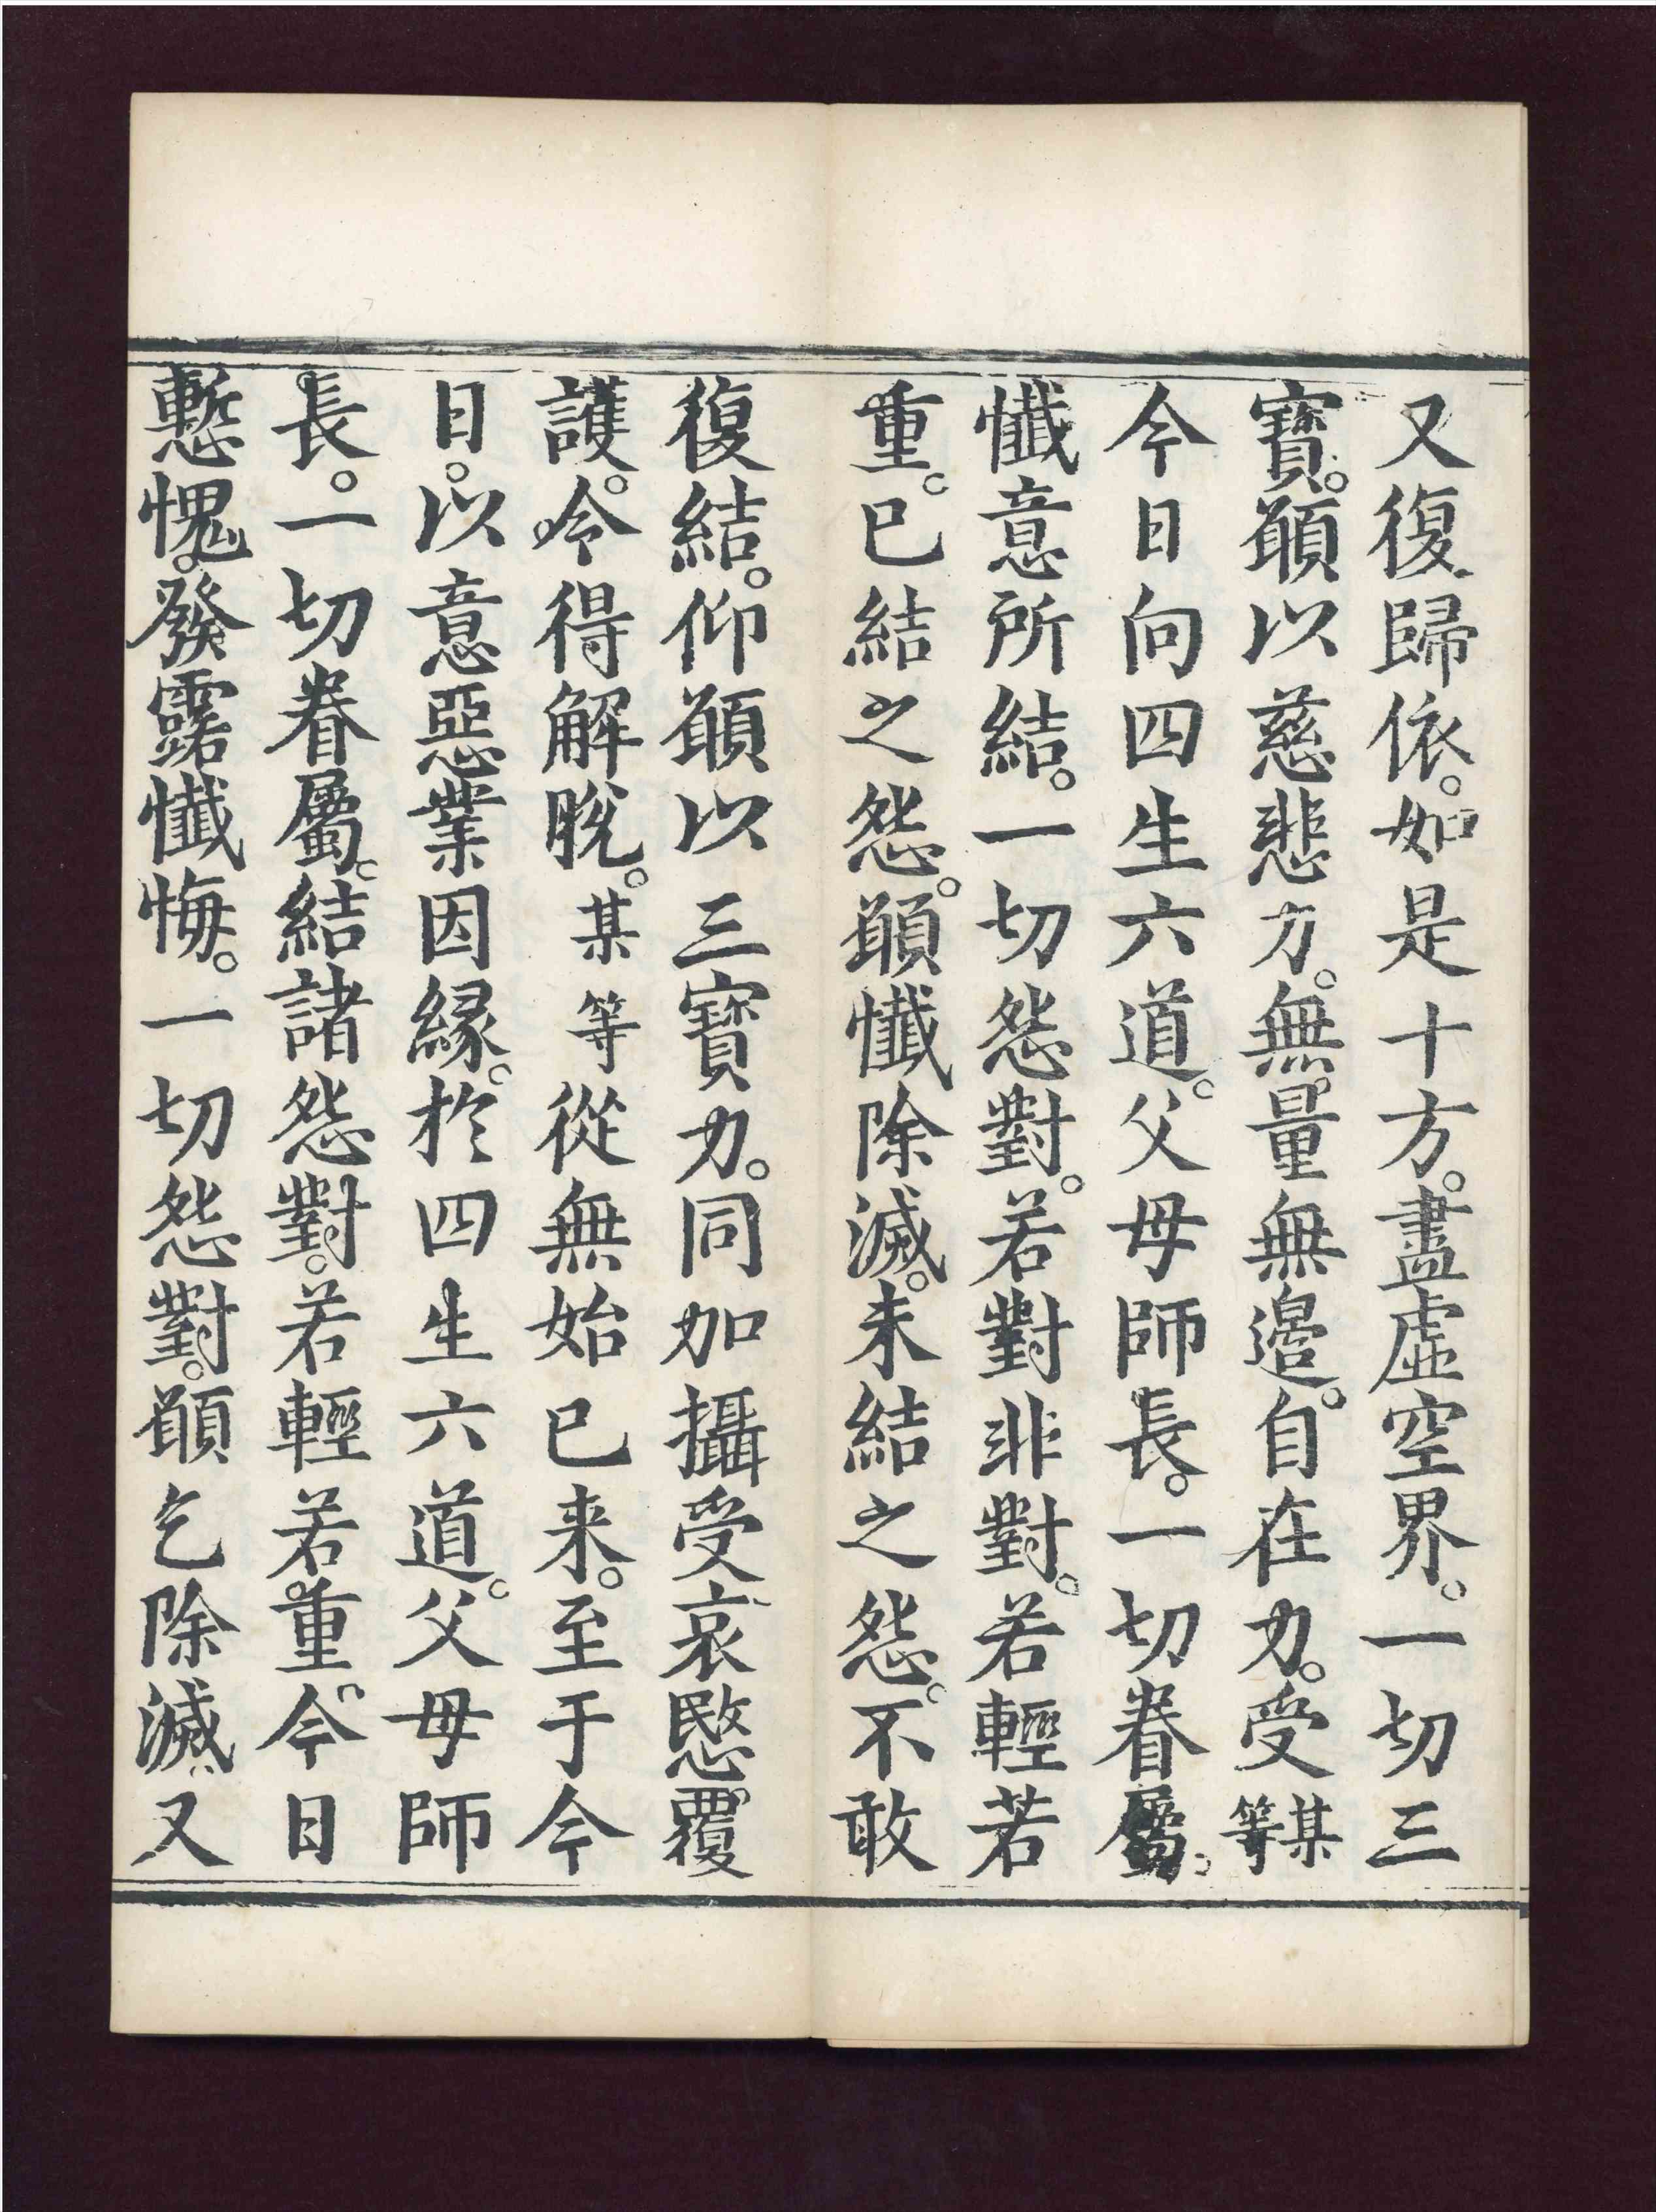 又復歸依。如是十方。盡虛空界。一切三
寶。願以慈悲力。無量無邉。自在力。受某等
今日向四生六道。父母師長。一切眷屬。
懺意所結。一切怨對。若對非對。若輕若
重。已結之怨。願懺除滅。未結之怨。不敢
復結。仰願以三寶力。同加攝受哀愍。覆
護。令得解脫。某等從無始已来。至于今
日。以意惡業因縁。於四生六道。父母師
長。一切眷屬。結諸怨對。若輕若重。今日
慙愧。發露懺悔。一切怨對。願乞除滅。又